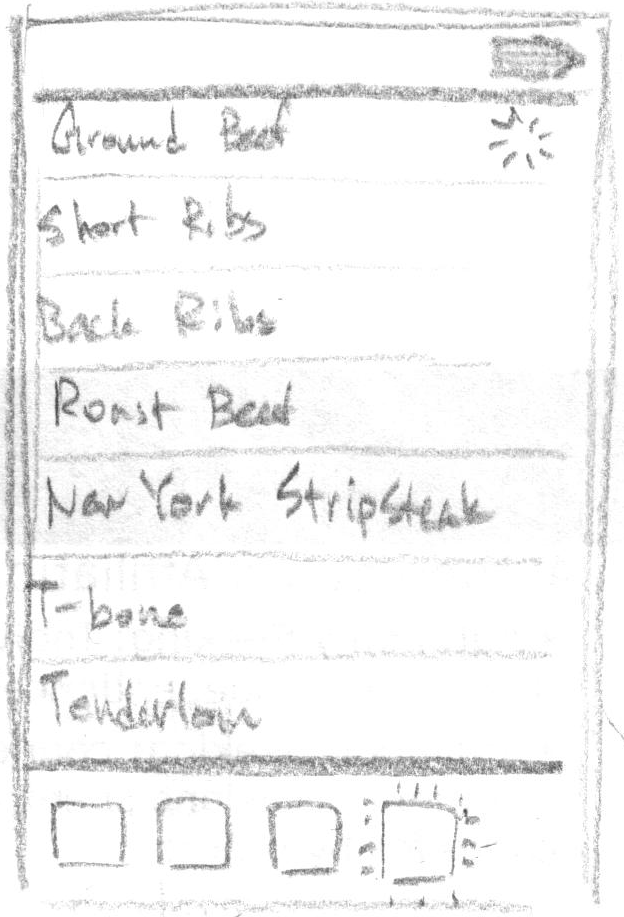 Ground Beef
Short Ribs
Back Ribs
Roast Beef
New York Stripsteak
T-bone
Tenderloin